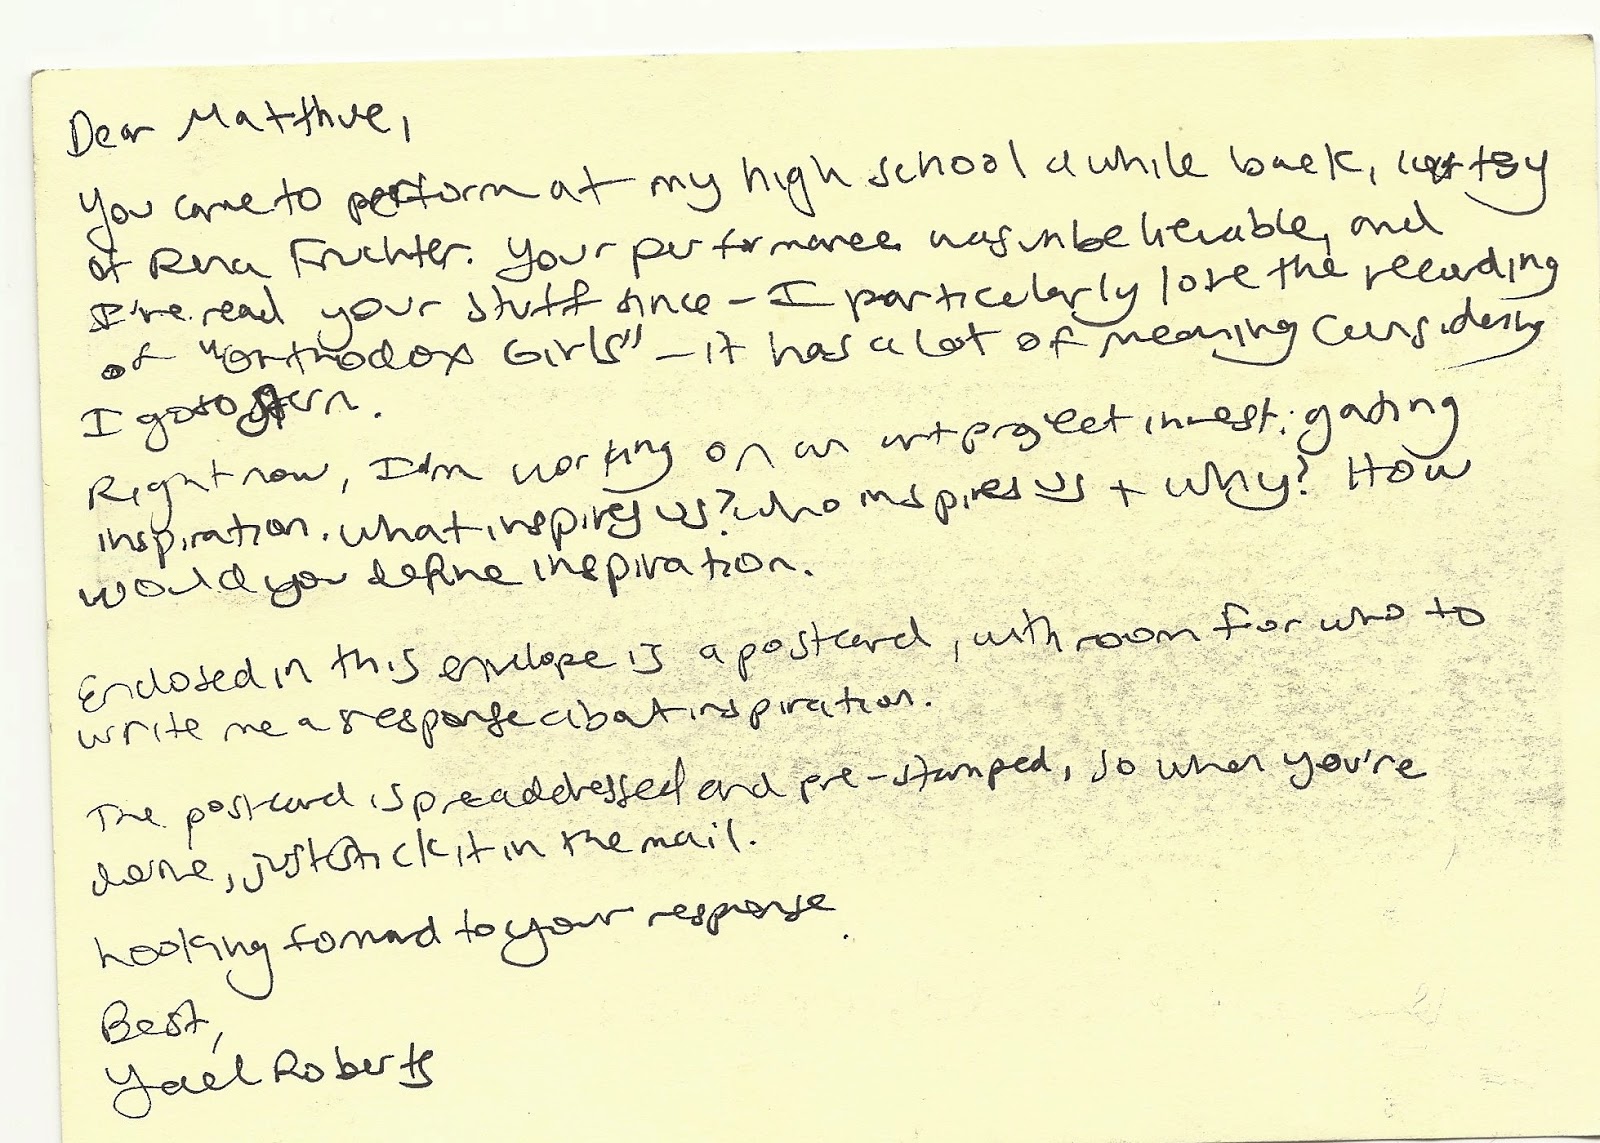 Dear Matthue,
You came to perform at my high school a while back,
of Rena Fruchter. Your performance was unbelievable, and
I've read your stuff since - I particularly love the recording
of "Orthodox Girls" - it has a lot of meaning considering
I go to Stern.
Right now, I'm working on an art project investigating
inspiration. What inspires us? Who inspires us + why? How
would you define inspiration.
Enclosed in this envelope is a postcard, with room for who to
write me a response about inspiration.
The postcard is preaddressed and pre-stamped, so when you're
done, just stick it in the mail.
Looking forward to your response.
Best,
Yael Roberts